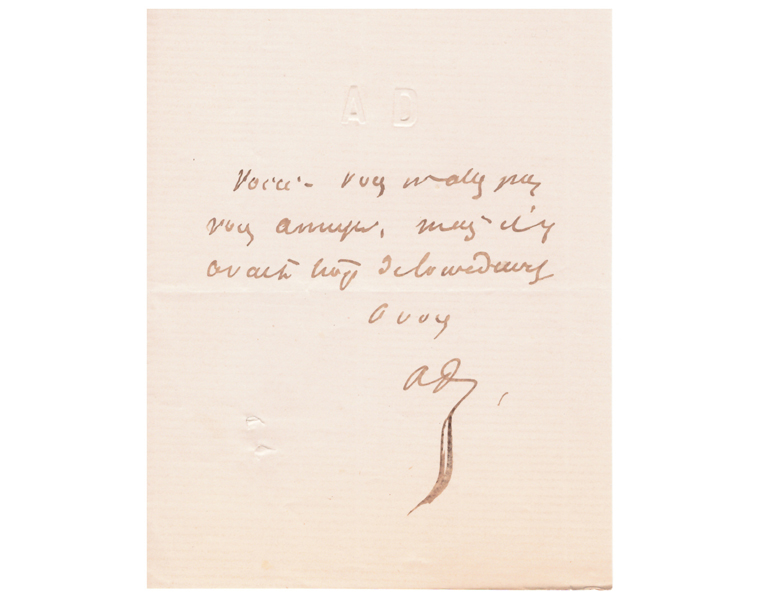 A D
Voici - vous n'allez pas
vous amuser, mais il y
avait trop de lourdeurs
a vous
AD